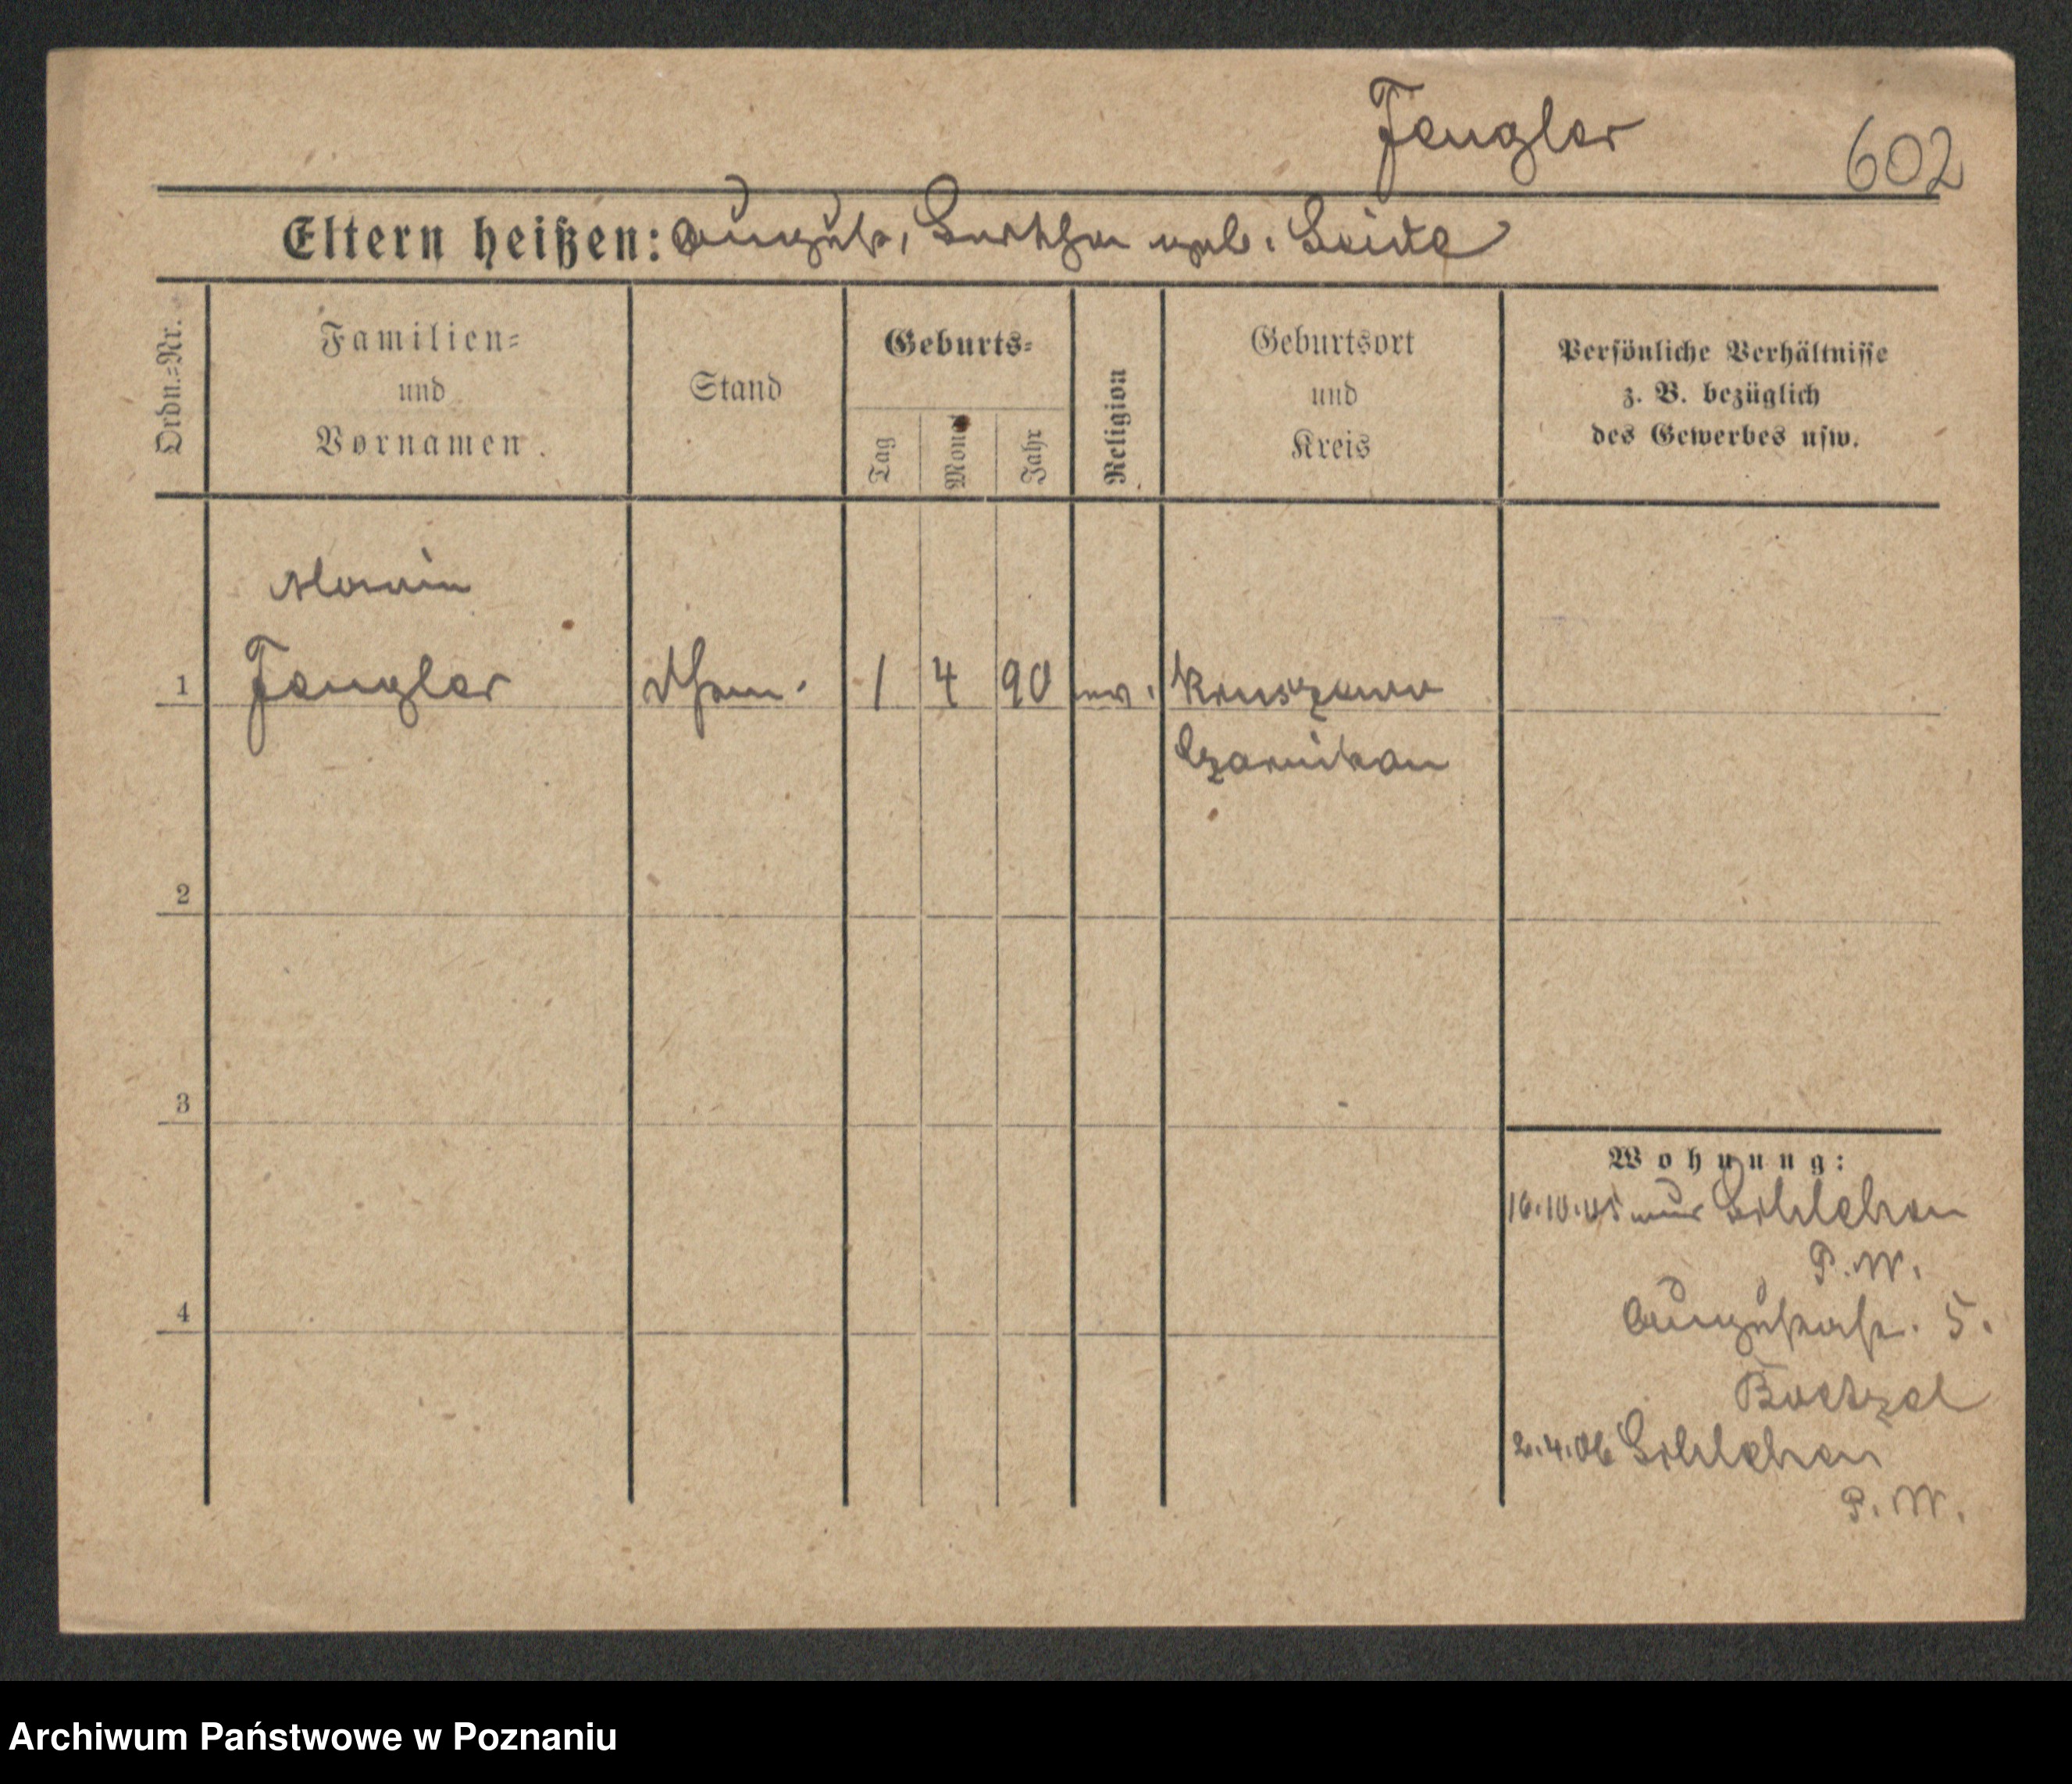 Fengler
602
Eltern heißen: August, Bertha geb. Seide
Ordn.=Nr.
Familien=
und
Vornamen.
Stand
Geburts=
Tag
Monat
Jahr
Religion
Geburtsort
und
Kreis
Persönliche Verhältnisse
z. B. bezüglich
des Gewerbes usw.
Fengler
1 4 90 ev.
Czarnikau
1
2
3
4
Wohnung:
16.10.05 aus Schlehen
P. W.
Augustastr. 5.
2.4.06 Schlehen
P. W.
Archiwum Państwowe w Poznaniu